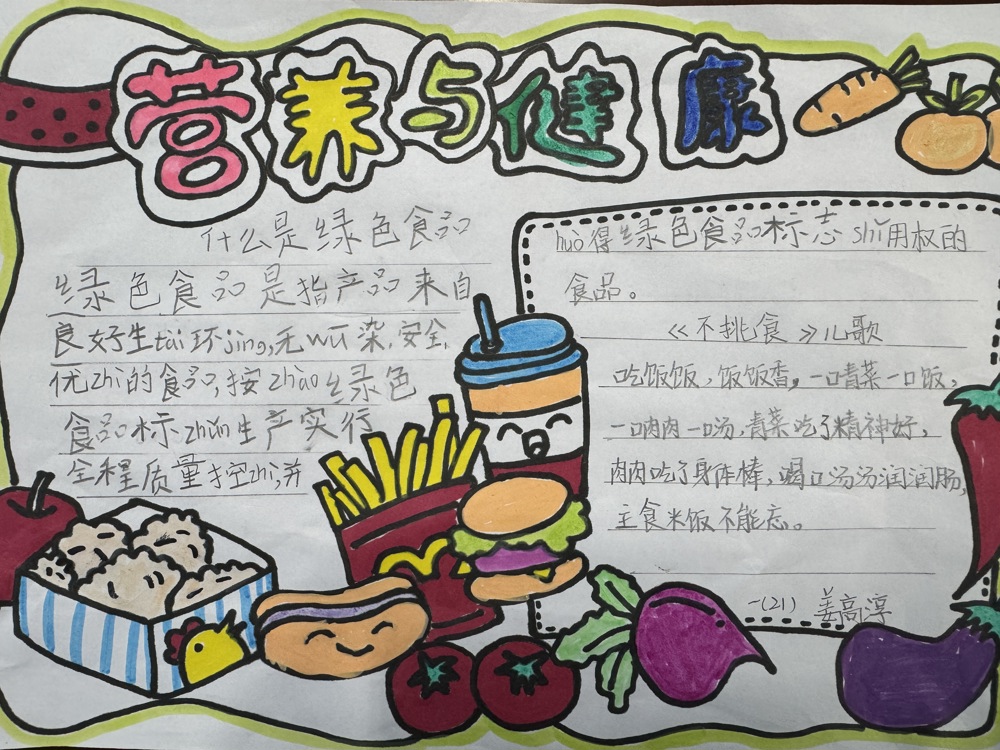 营养与健康
什么是绿色食品
绿色食品是指产品来自
良好生tài环jìng,无wū染,安全,
优zhì的食品,按zhào绿色
食品标zhǔn生产实行
全程质量控zhì,并
huò得绿色食品标志shǐ用权的
食品。
《不挑食》儿歌
吃饭饭,饭饭香,一口青菜一口饭,
一口肉肉一口汤,青菜吃了精神好,
肉肉吃了身体棒,喝口汤汤润润肠,
主食米饭不能忘。
一(21) 姜高淳